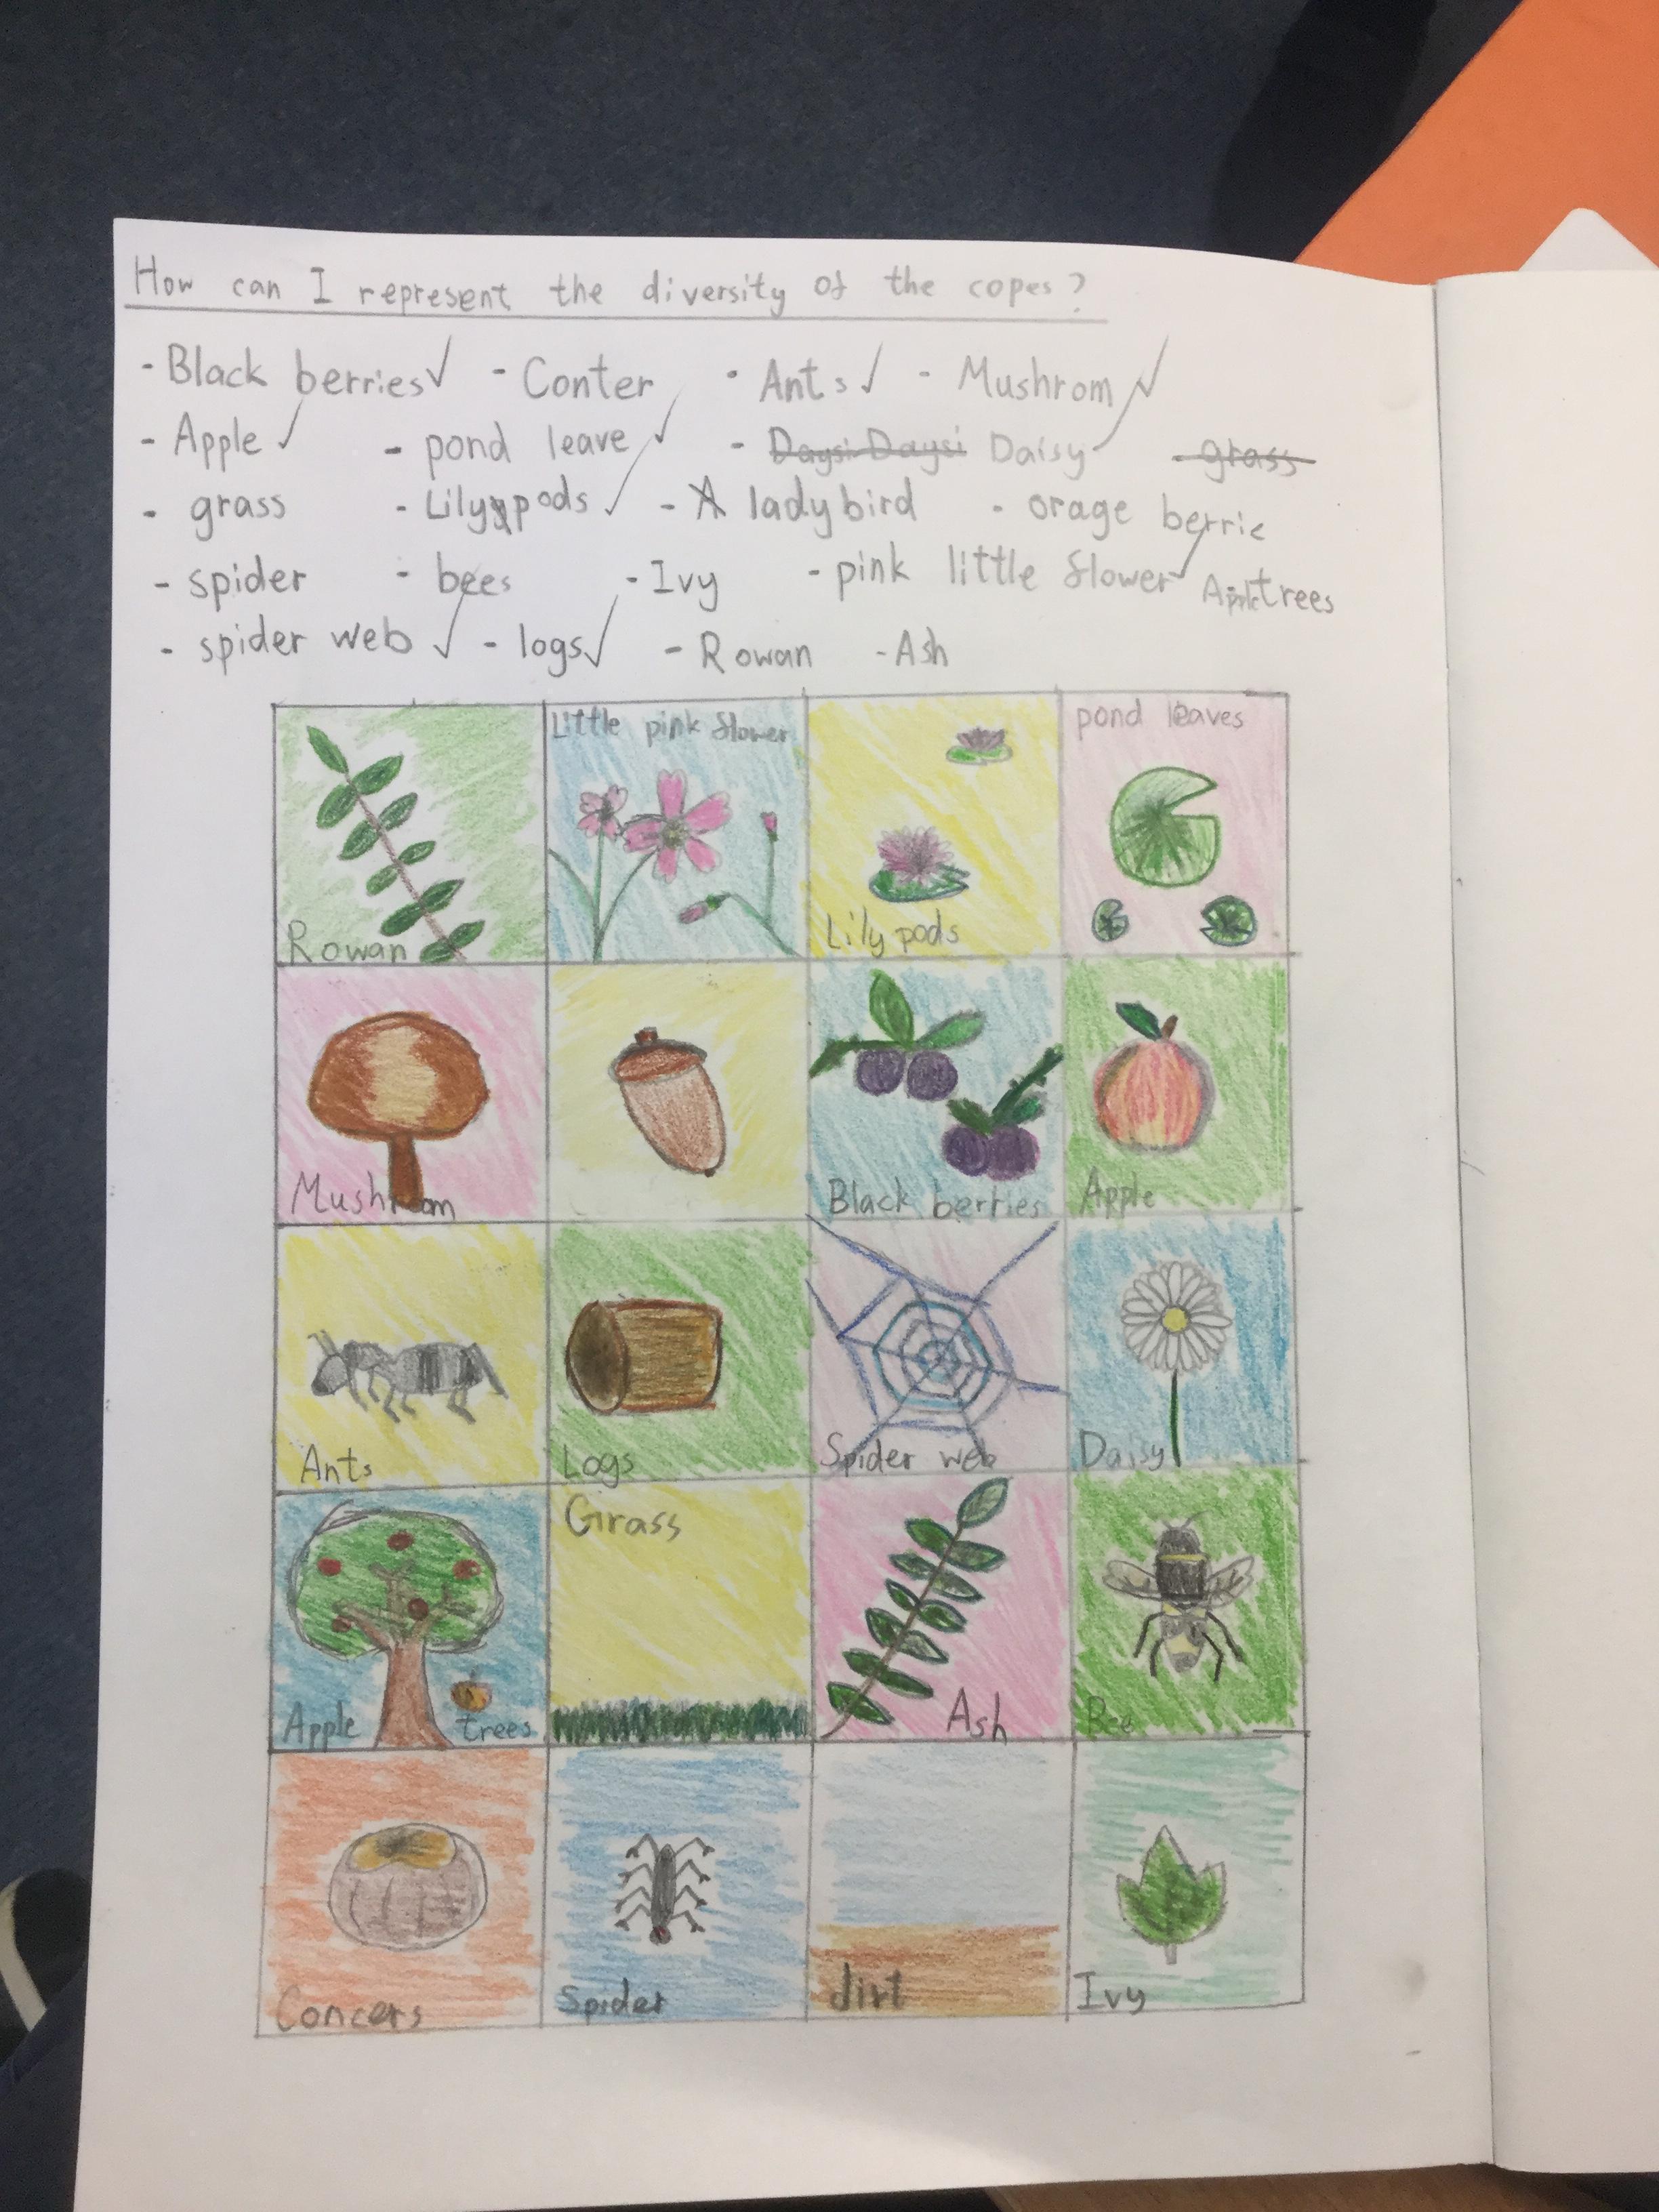 How can I represent the diversity of the copes?
- Black berries ✓ - Conter - Ants ✓ - Mushrom ✓
- Apple ✓ - pond leave ✓ - Daysi Daysi Daisy ✓ - grass
- grass - Lilypods ✓ - A ladybird - orage berrie
- spider - bees - Ivy - pink little flower ✓ Apple trees
- spider web ✓ - logs ✓ - Rowan - Ash
Rowan
Little pink flower
Lily pods
pond leaves
Mushroom
Black berries
Apple
Ants
Logs
Spider web
Daisy
Apple trees
Grass
Ash
Bee
Concers
Spider
dirt
Ivy